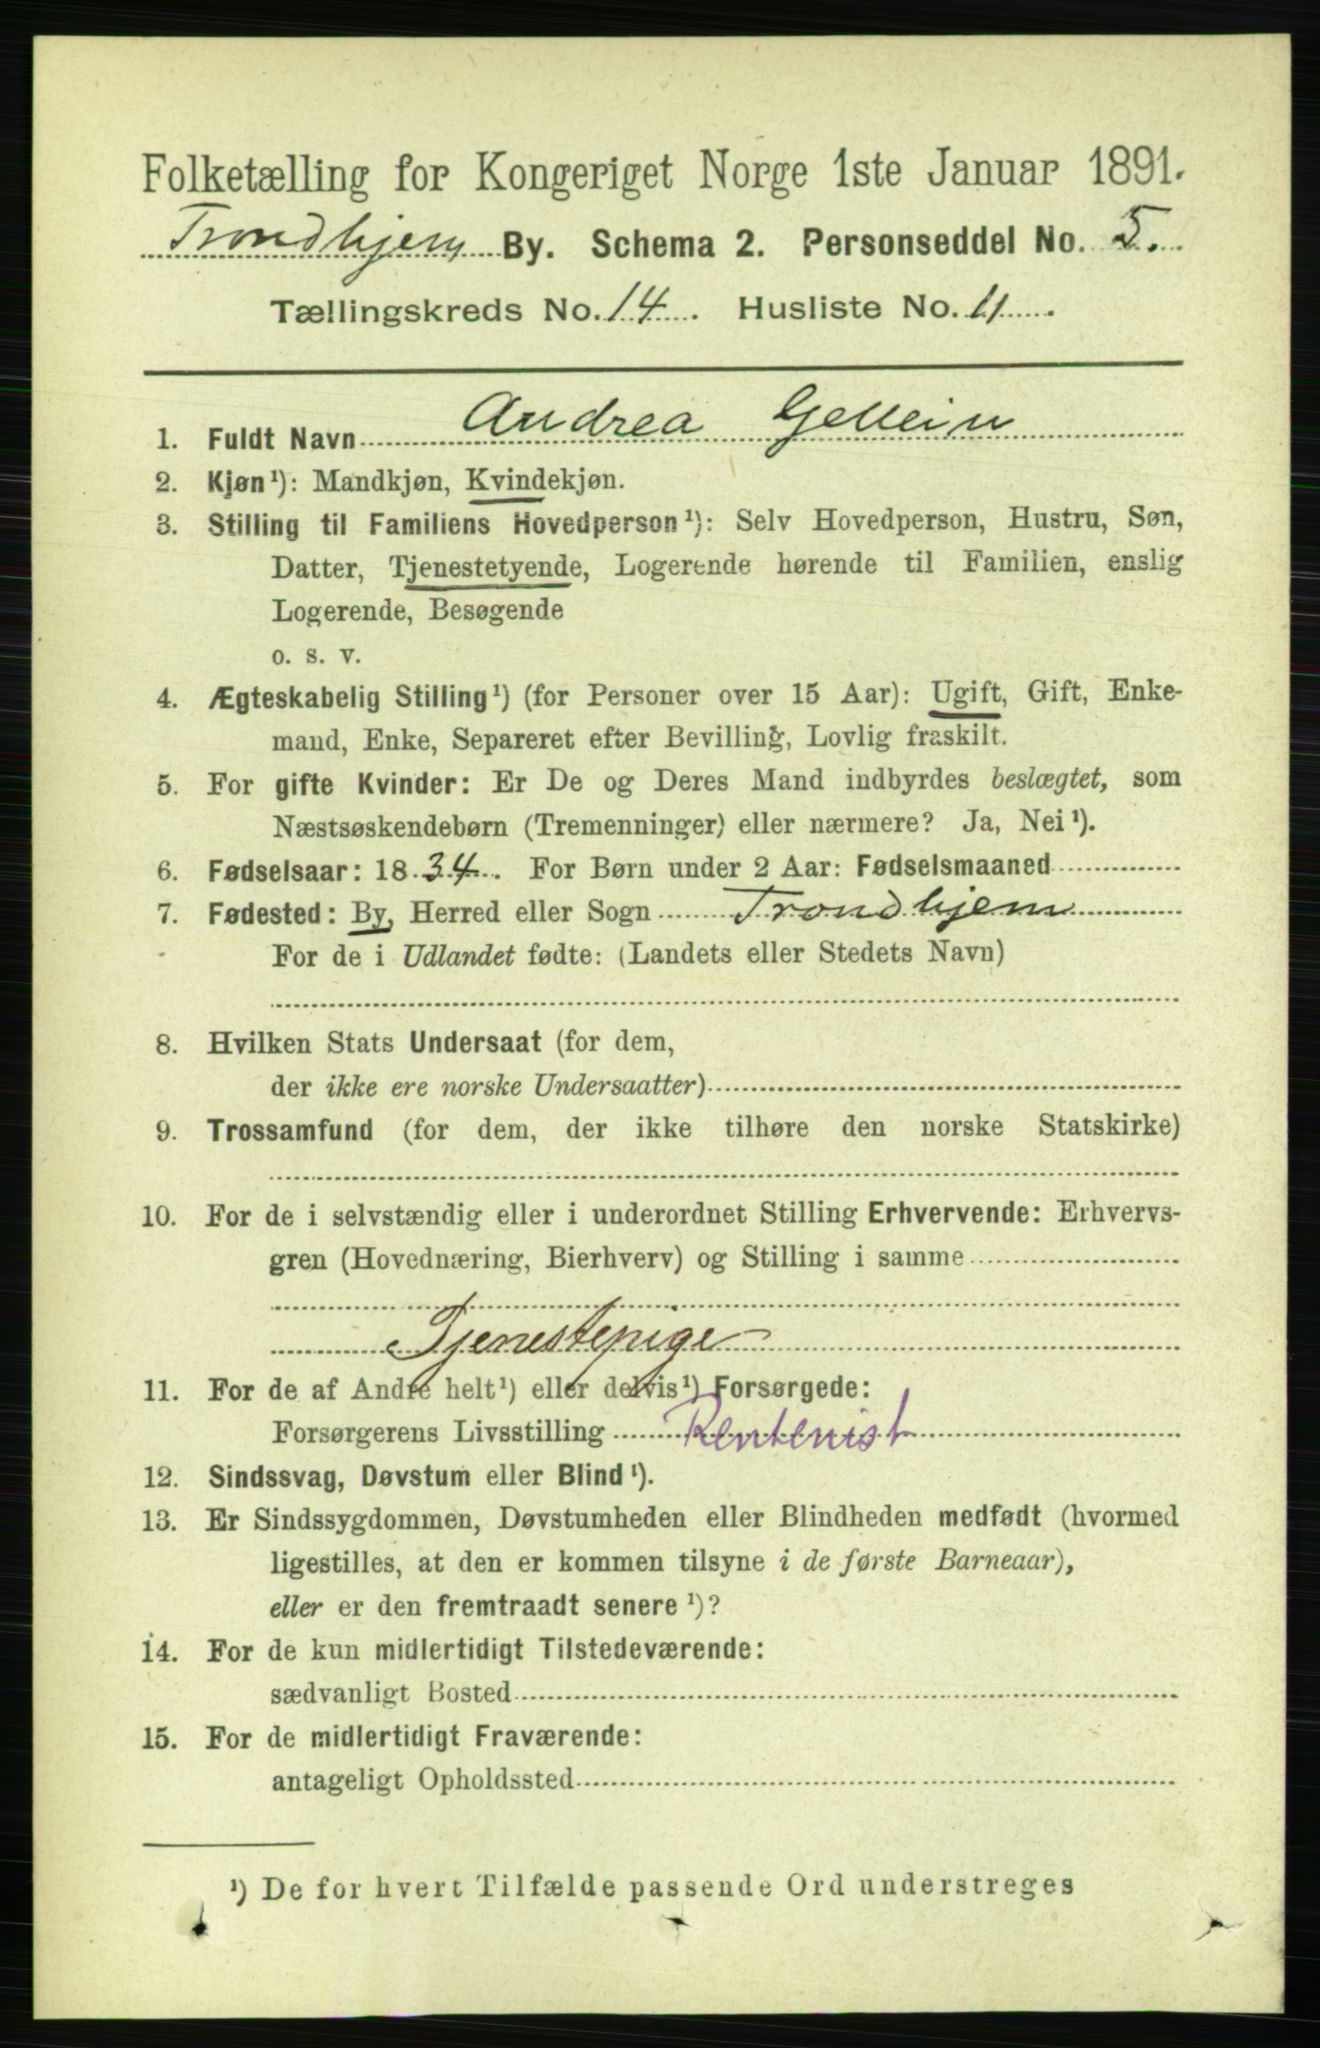 Folketælling for Kongeriget Norge 1ste Januar 1891.
Trondhjem By. Schema 2. Personseddel No. 5.
Tællingskreds No. 14. Husliste No. 11.
1. Fuldt Navn Andrea Gellein
2. Kjøn¹): Mandkjøn, Kvindekjøn.
3. Stilling til Familiens Hovedperson¹): Selv Hovedperson, Hustru, Søn,
Datter, Tjenestetyende, Logerende hørende til Familien, enslig
Logerende, Besøgende
o. s. v.
4. Ægteskabelig Stilling¹) (for Personer over 15 Aar): Ugift, Gift, Enke-
mand, Enke, Separeret efter Bevilling, Lovlig fraskilt.
5. For gifte Kvinder: Er De og Deres Mand indbyrdes beslægtet, som
Næstsøskendebørn (Tremenninger) eller nærmere? Ja, Nei¹).
6. Fødselsaar: 1834. For Børn under 2 Aar: Fødselsmaaned
7. Fødested: By, Herred eller Sogn Trondhjem
For de i Udlandet fødte: (Landets eller Stedets Navn)
8. Hvilken Stats Undersaat (for dem,
der ikke ere norske Undersaatter)
9. Trossamfund (for dem, der ikke tilhøre den norske Statskirke)
10. For de i selvstændig eller i underordnet Stilling Erhvervende: Erhvervs-
gren (Hovednæring, Bierhverv) og Stilling i samme
Tjenestepige
11. For de af Andre helt¹) eller delvis¹) Forsørgede:
Forsørgerens Livsstilling Rentenist
12. Sindssvag, Døvstum eller Blind¹).
13. Er Sindssygdommen, Døvstumheden eller Blindheden medfødt (hvormed
ligestilles, at den er kommen tilsyne i de første Barneaar),
eller er den fremtraadt senere¹)?
14. For de kun midlertidigt Tilstedeværende:
sædvanligt Bosted
15. For de midlertidigt Fraværende:
antageligt Opholdssted
¹) De for hvert Tilfælde passende Ord understreges